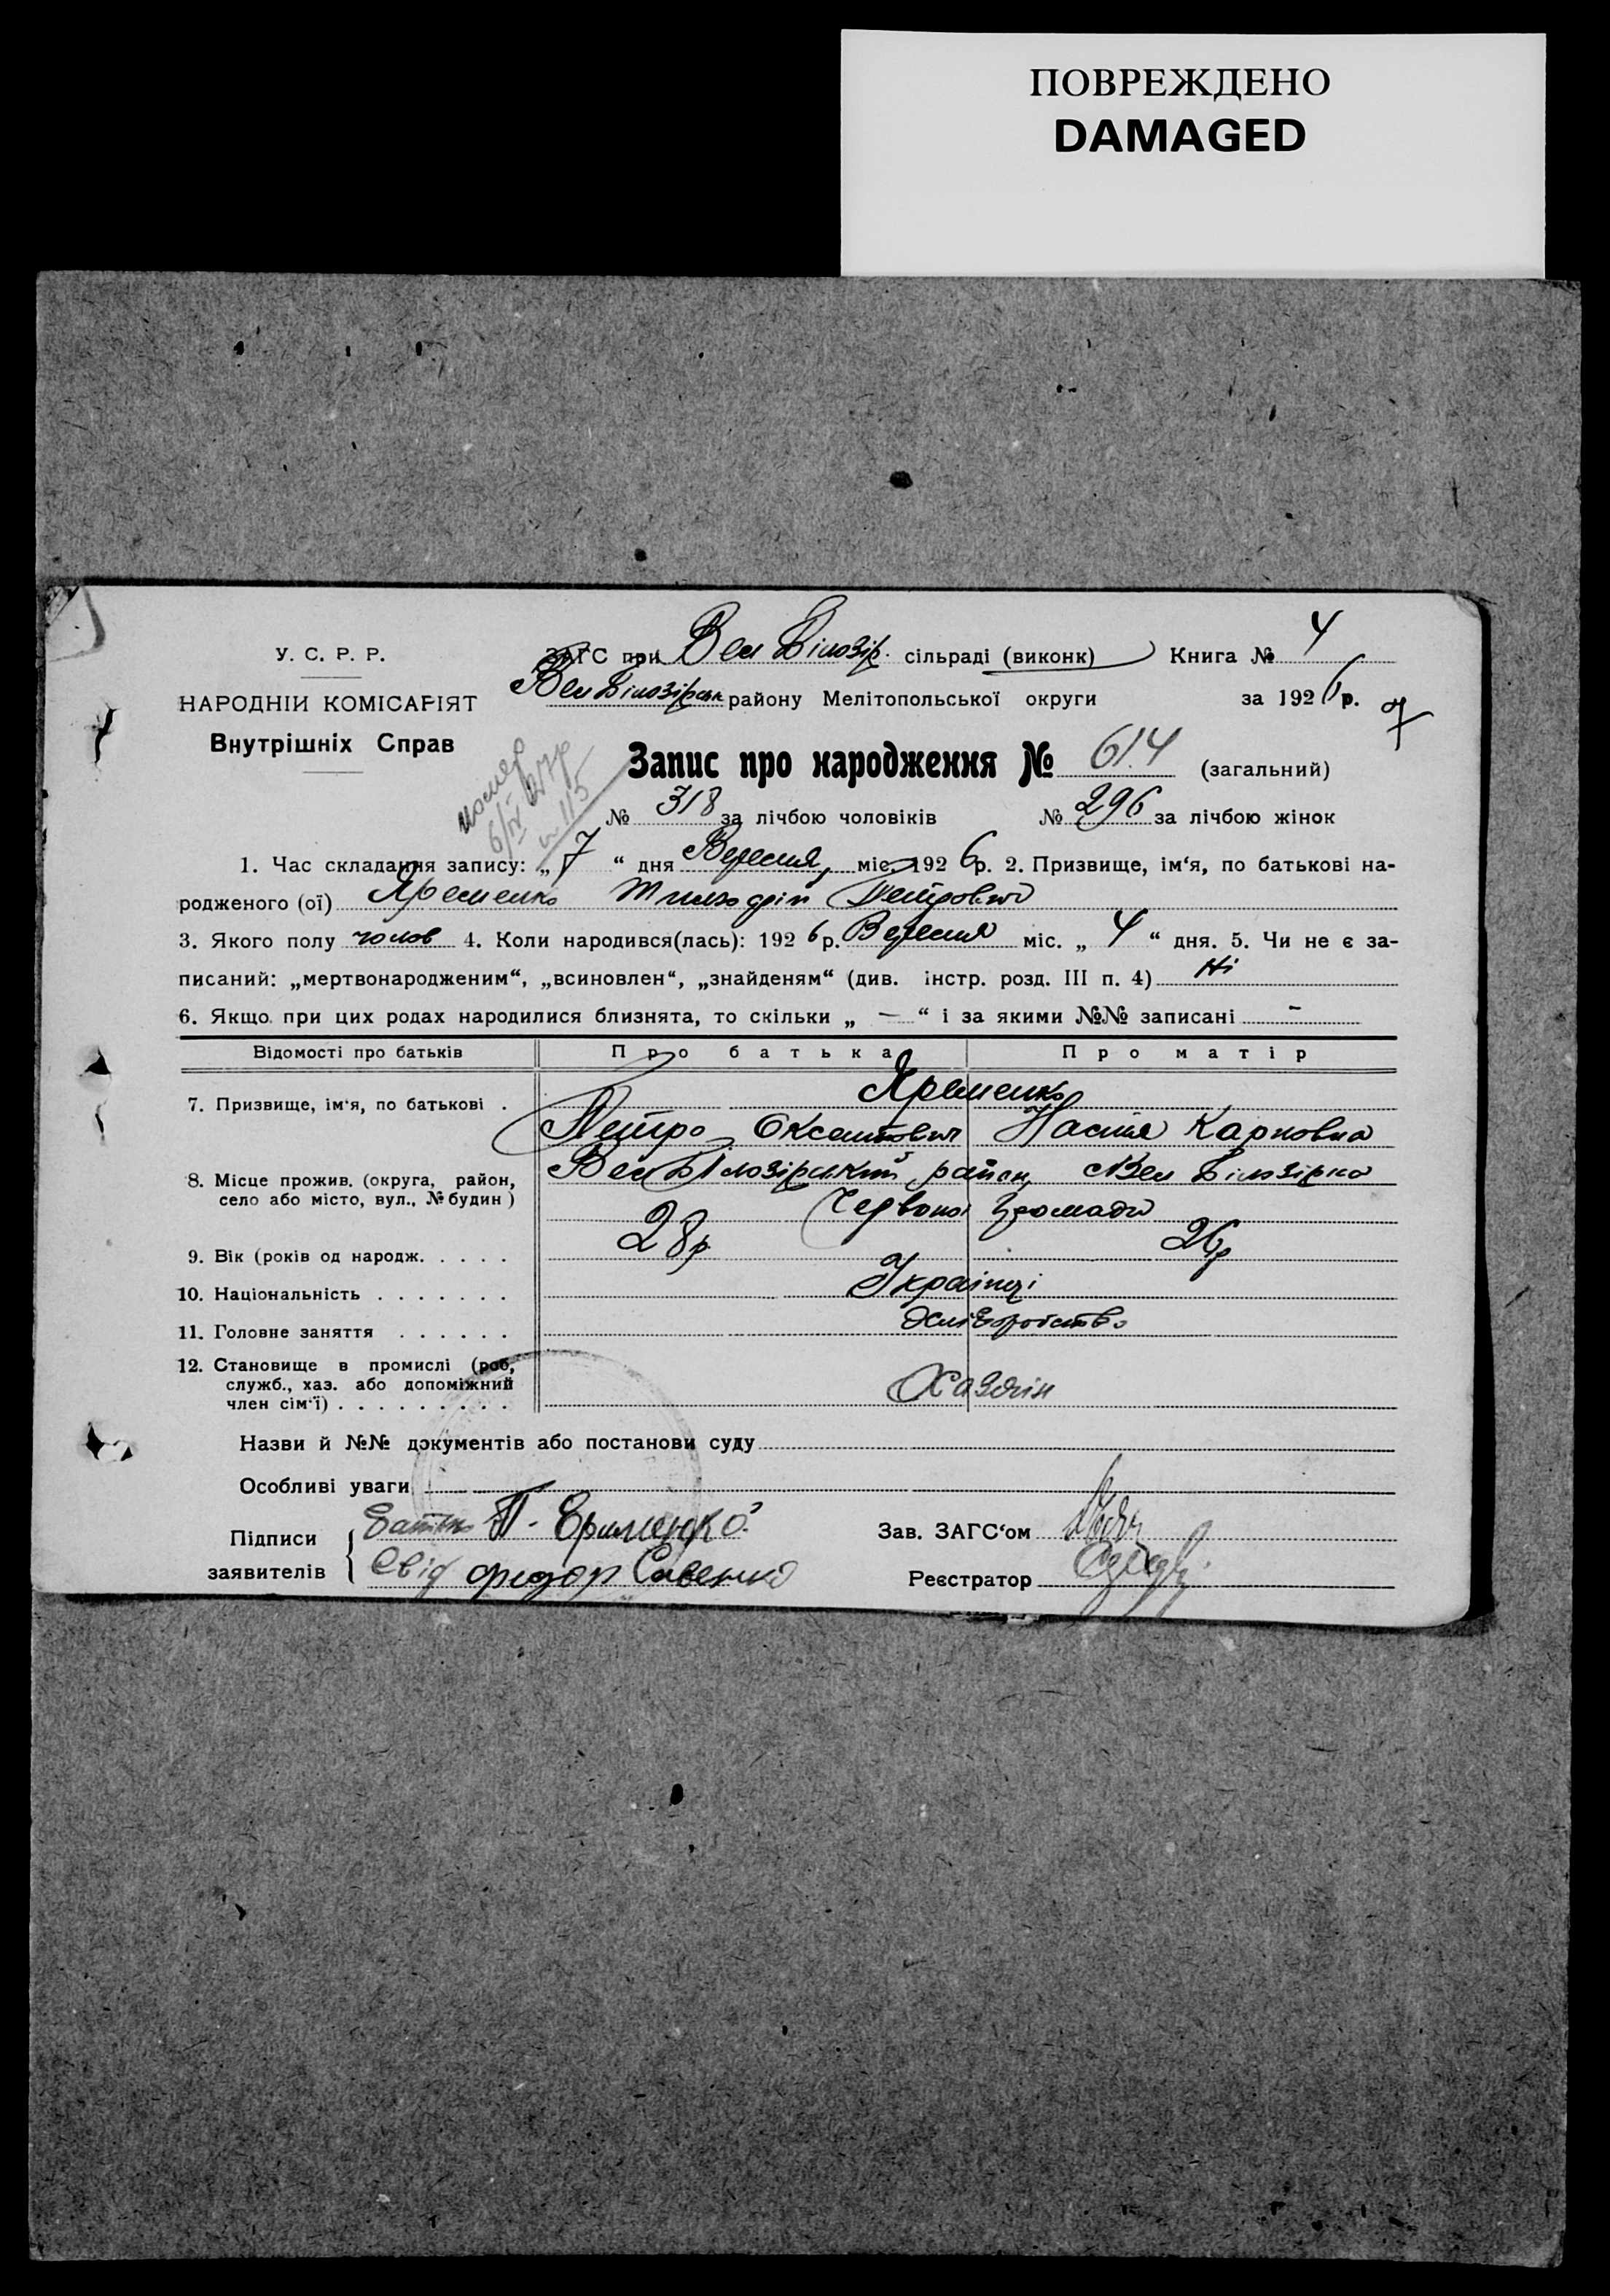 ПОВРЕЖДЕНО
DAMAGED
У. С. Р. Р.
НАРОДНІЙ КОМІСАРІЯТ
Внутрішніх Справ
ЗАГС при Вел Білозір. сільраді (виконк) Книга № 4
Вел Білозірськ району Мелітопольської округи за 1926 р.
7
помер
6/IV 27р
115
Запис про народження № 614 (загальний)
№ 318 за лічбою чоловіків № 296 за лічбою жінок
1. Час складання запису: „ 7 “ дня Вересня, міс. 1926 р. 2. Призвище, ім‘я, по батькові на-
родженого (ої) Яременко Петрович
3. Якого полу чолов 4. Коли народився(лась): 1926 р. Вересня міс. „ 4 “ дня. 5. Чи не є за-
писаний: „мертвонародженим“, „всиновлен“, „знайденям“ (див. інстр. розд. III п. 4) Ні
6. Якщо при цих родах народилися близнята, то скільки „ — “ і за якими №№ записані -
Відомості про батьків Про батька Про матір
7. Призвище, ім‘я, по батькові . Яременко
Петро Оксентович Настя Карповна
8. Місце прожив. (округа, район, село або місто, вул., № будин) Вел Білозірський район, Вел Білозірка
Червоної Громади
9. Вік (років од народж. . . . . 28р 26р
10. Національність . . . . . . . Українці
11. Головне заняття . . . . . . Хліборобство
12. Становище в промислі (роб,
служб., хаз. або допоміжний
член сім‘ї) . . . . . . . . . Хазяїн
Назви й №№ документів або постанови суду
Особливі уваги
Підписи заявителів { Батько П. Ерименко Зав. ЗАГС‘ом
Свід Федор Савенко Реєстратор